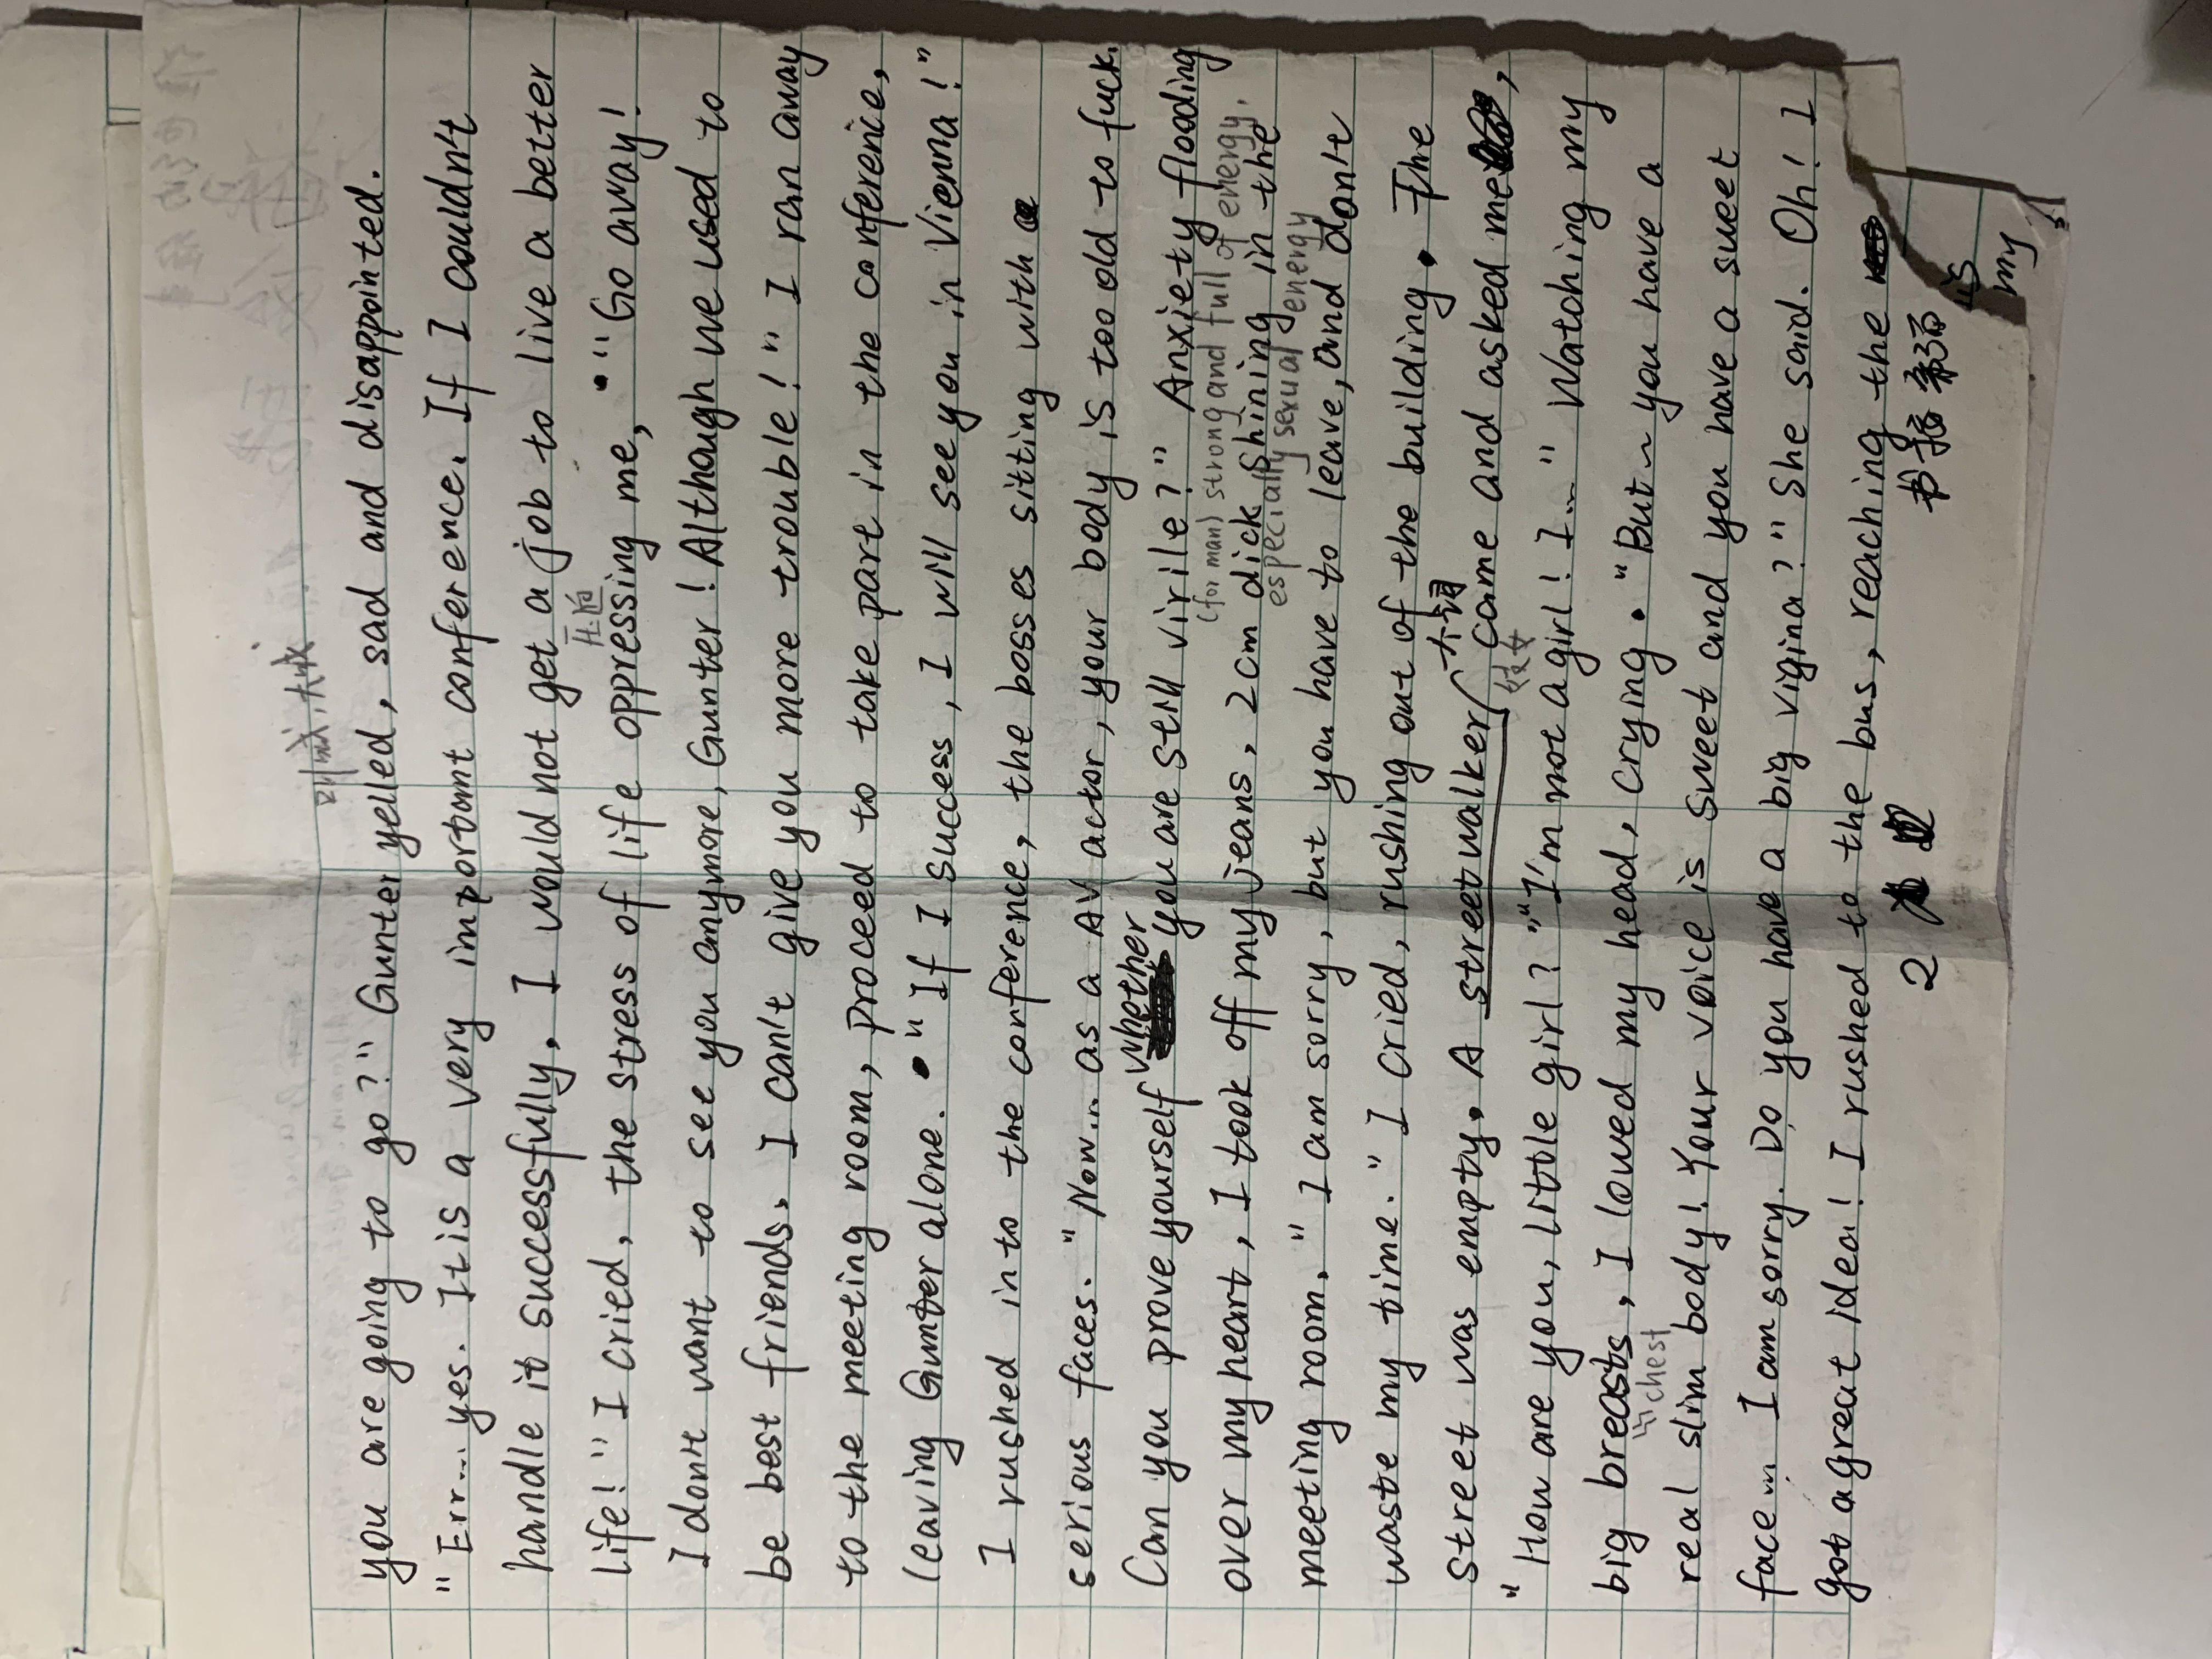 叫喊,大喊
you are going to go?" Gunter yelled, sad and disappointed.
"Err... yes. It is a very important conference. If I couldn't
handle it successfully. I would not get a job to live a better
压迫
life!" I cried, the stress of life oppressing me, "Go away!
I don't want to see you anymore, Gunter! Although we used to
be best friends. I can't give you more trouble!" I ran away
to the meeting room, proceed to take part in the conference,
leaving Gunter alone. "If I success, I will see you in Vienna!"
I rushed into the conference, the bosses sitting with
serious faces. "Now... as a AV actor, your body is too old to fuck.
Can you prove yourself whether you are still virile?" Anxiety flooding
(for man) strong and full of energy.
over my heart, I took off my jeans, 2cm dick shining in the
especially sexual energy
meeting room. "I am sorry, but you have to leave, and don't
waste my time." I cried, rushing out of the building. The
street was empty. A streetwalker came and asked me,
妓女
"How are you, little girl?" "I'm not a girl! I..." Watching my
big breasts, I lowed my head, crying. "But~ you have a
chest
real slim body! Your voice is sweet and you have a sweet
face... I am sorry. Do you have a big vigina?" She said. Oh! I
got a great idea! I rushed to the bus, reaching the
2
is
my